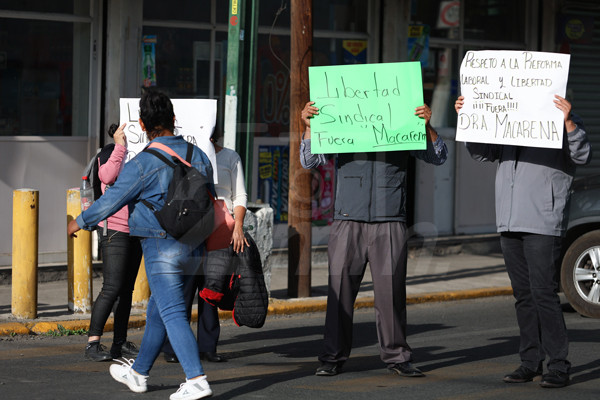 LI
SIN
Libertad
Sindical
Fuera "Macarena
RESPETO A LA REFORMA
LABORAL Y LIBERTAD
SINDICAL
¡¡¡FUERA!!!!
DRA MACARENA